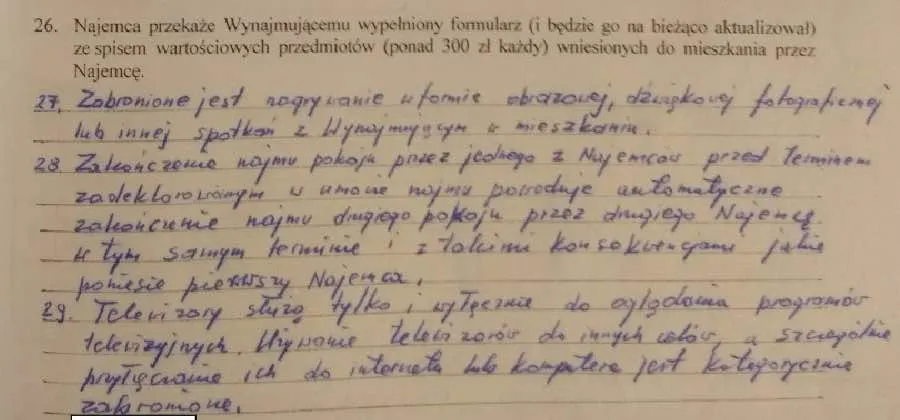 26. Najemca przekaże Wynajmującemu wypełniony formularz (i będzie go na bieżąco aktualizował)
ze spisem wartościowych przedmiotów (ponad 300 zł każdy) wniesionych do mieszkania przez
Najemcę.
27. Zabronione jest nagrywanie w formie obrazowej, dźwiękowej fotograficznej
lub innej spotkań z Wynajmującym w mieszkaniu.
28. Zakończenie najmu pokoju przez jednego z Najemców przed terminem
zadeklarowanym w umowie najmu powoduje automatyczne
zakończenie najmu drugiego pokoju przez drugiego Najemcę
w tym samym terminie i z takimi konsekwencjami jakie
poniesie pierwszy Najemca.
29. Telewizory służą tylko i wyłącznie do oglądania programów
telewizyjnych. Używanie telewizorów do innych celów, a szczególnie
przyłączanie ich do internetu lub komputera jest kategorycznie
zabronione.